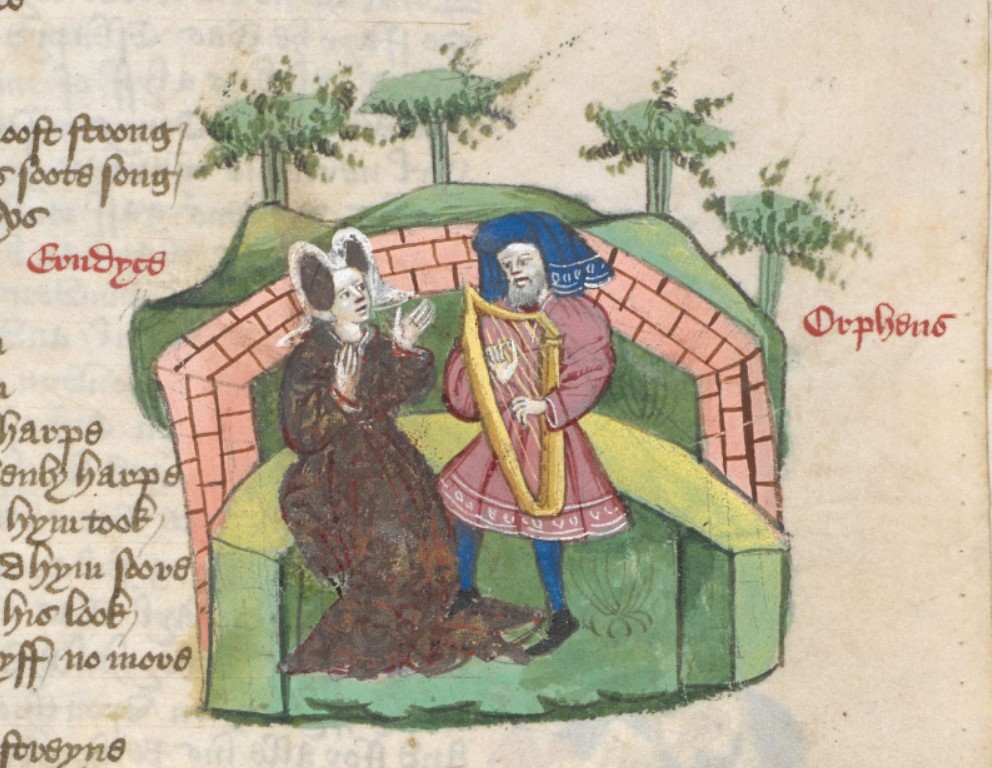 oost strong
s soote song
Erudyce
Orpheus
harpe
enly harpe
hym took
d hym soore
his look
yff no more
streyne